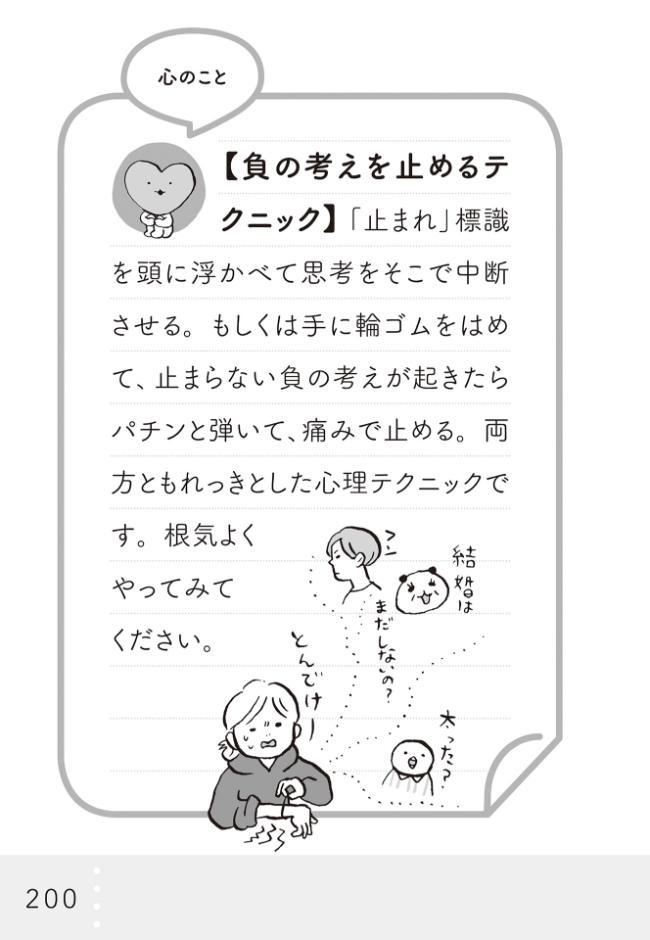 心のこと
【負の考えを止めるテ
クニック】「止まれ」標識
を頭に浮かべて思考をそこで中断
させる。もしくは手に輪ゴムをはめ
て、止まらない負の考えが起きたら
パチンと弾いて、痛みで止める。両
方ともれっきとした心理テクニックで
す。根気よく
やってみて
ください。
フン
結婚は
まだしないの?
とんでけー
太った?
200